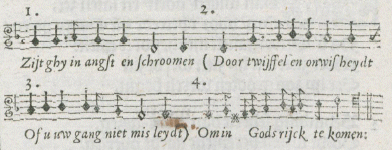 1. 2.
Zijt ghy in angſt en ſchroomen ( Door twijffel en onwiſheydt
3. 4.
Of u uw gang niet miſleydt) Om in Gods rijck te komen: